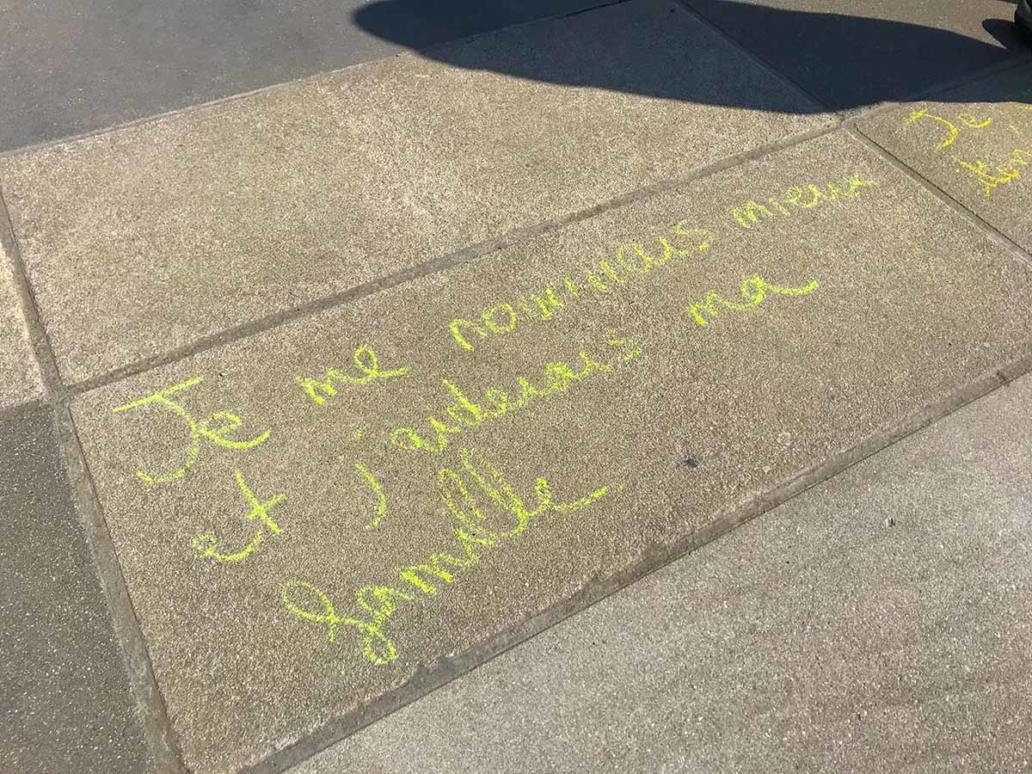 Je me nourrirais mieux
et j'aiderais ma
famille
Je